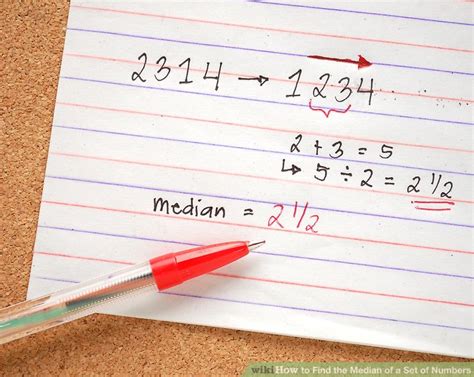 2314 → 1234
2 + 3 = 5
↳ 5 ÷ 2 = 2 1/2
median = 2 1/2
wiki How to Find the Median of a Set of Numbers